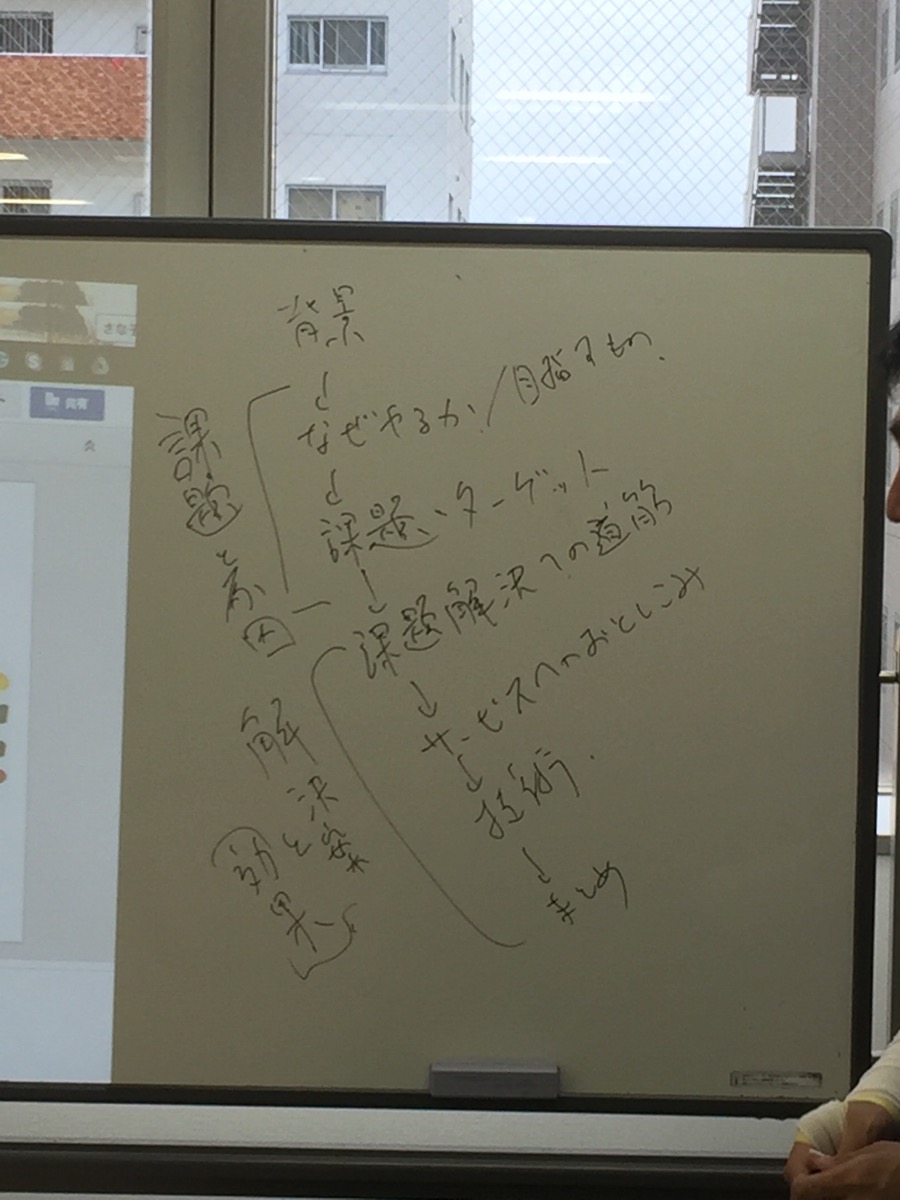 背景
↓
なぜやるか/目指すもの
↓
課題・ターゲット
↓
課題解決への道筋
↓
サービスへのおとしこみ
↓
技術
↓
まとめ
課題と要因
解決案と効果
さな子
共有